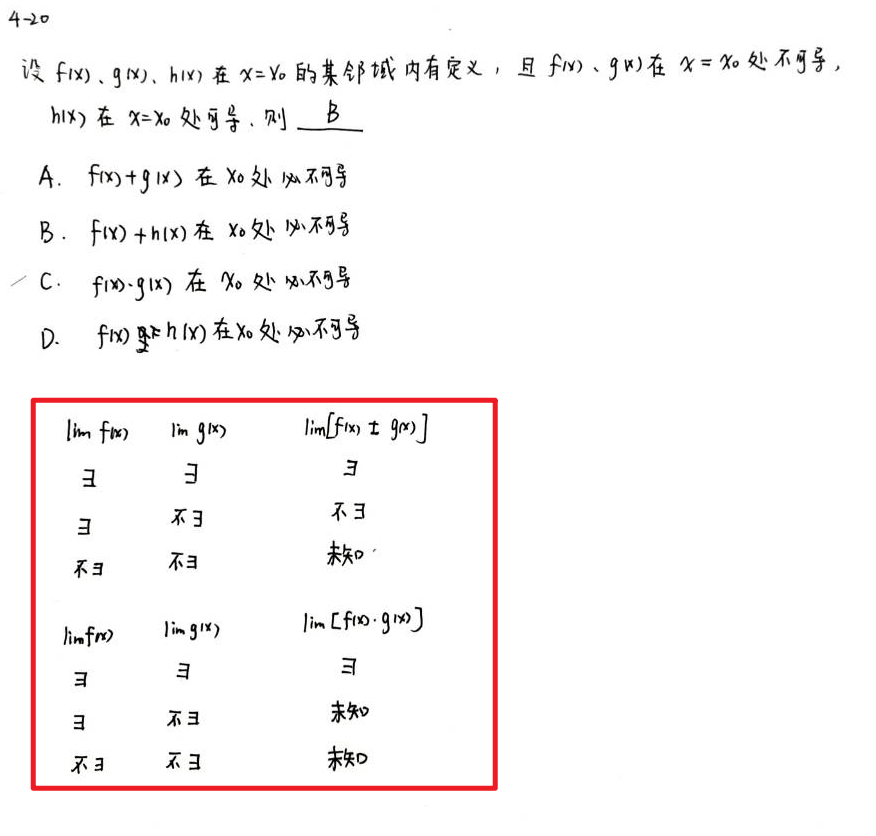 4-20
设 f(x)、g(x)、h(x) 在 x=x₀ 的某邻域内有定义，且 f(x)、g(x) 在 x = x₀ 处不可导，
h(x) 在 x=x₀ 处可导，则 B
A. f(x)+g(x) 在 x₀ 处必不可导
B. f(x)+h(x) 在 x₀ 处必不可导
C. f(x)·g(x) 在 x₀ 处必不可导
D. f(x) h(x) 在 x₀ 处必不可导
lim f(x) lim g(x) lim[f(x) ± g(x)]
∃ ∃ ∃
∃ 不∃ 不∃
不∃ 不∃ 未知
limf(x) lim g(x) lim [f(x)·g(x)]
∃ ∃ ∃
∃ 不∃ 未知
不∃ 不∃ 未知